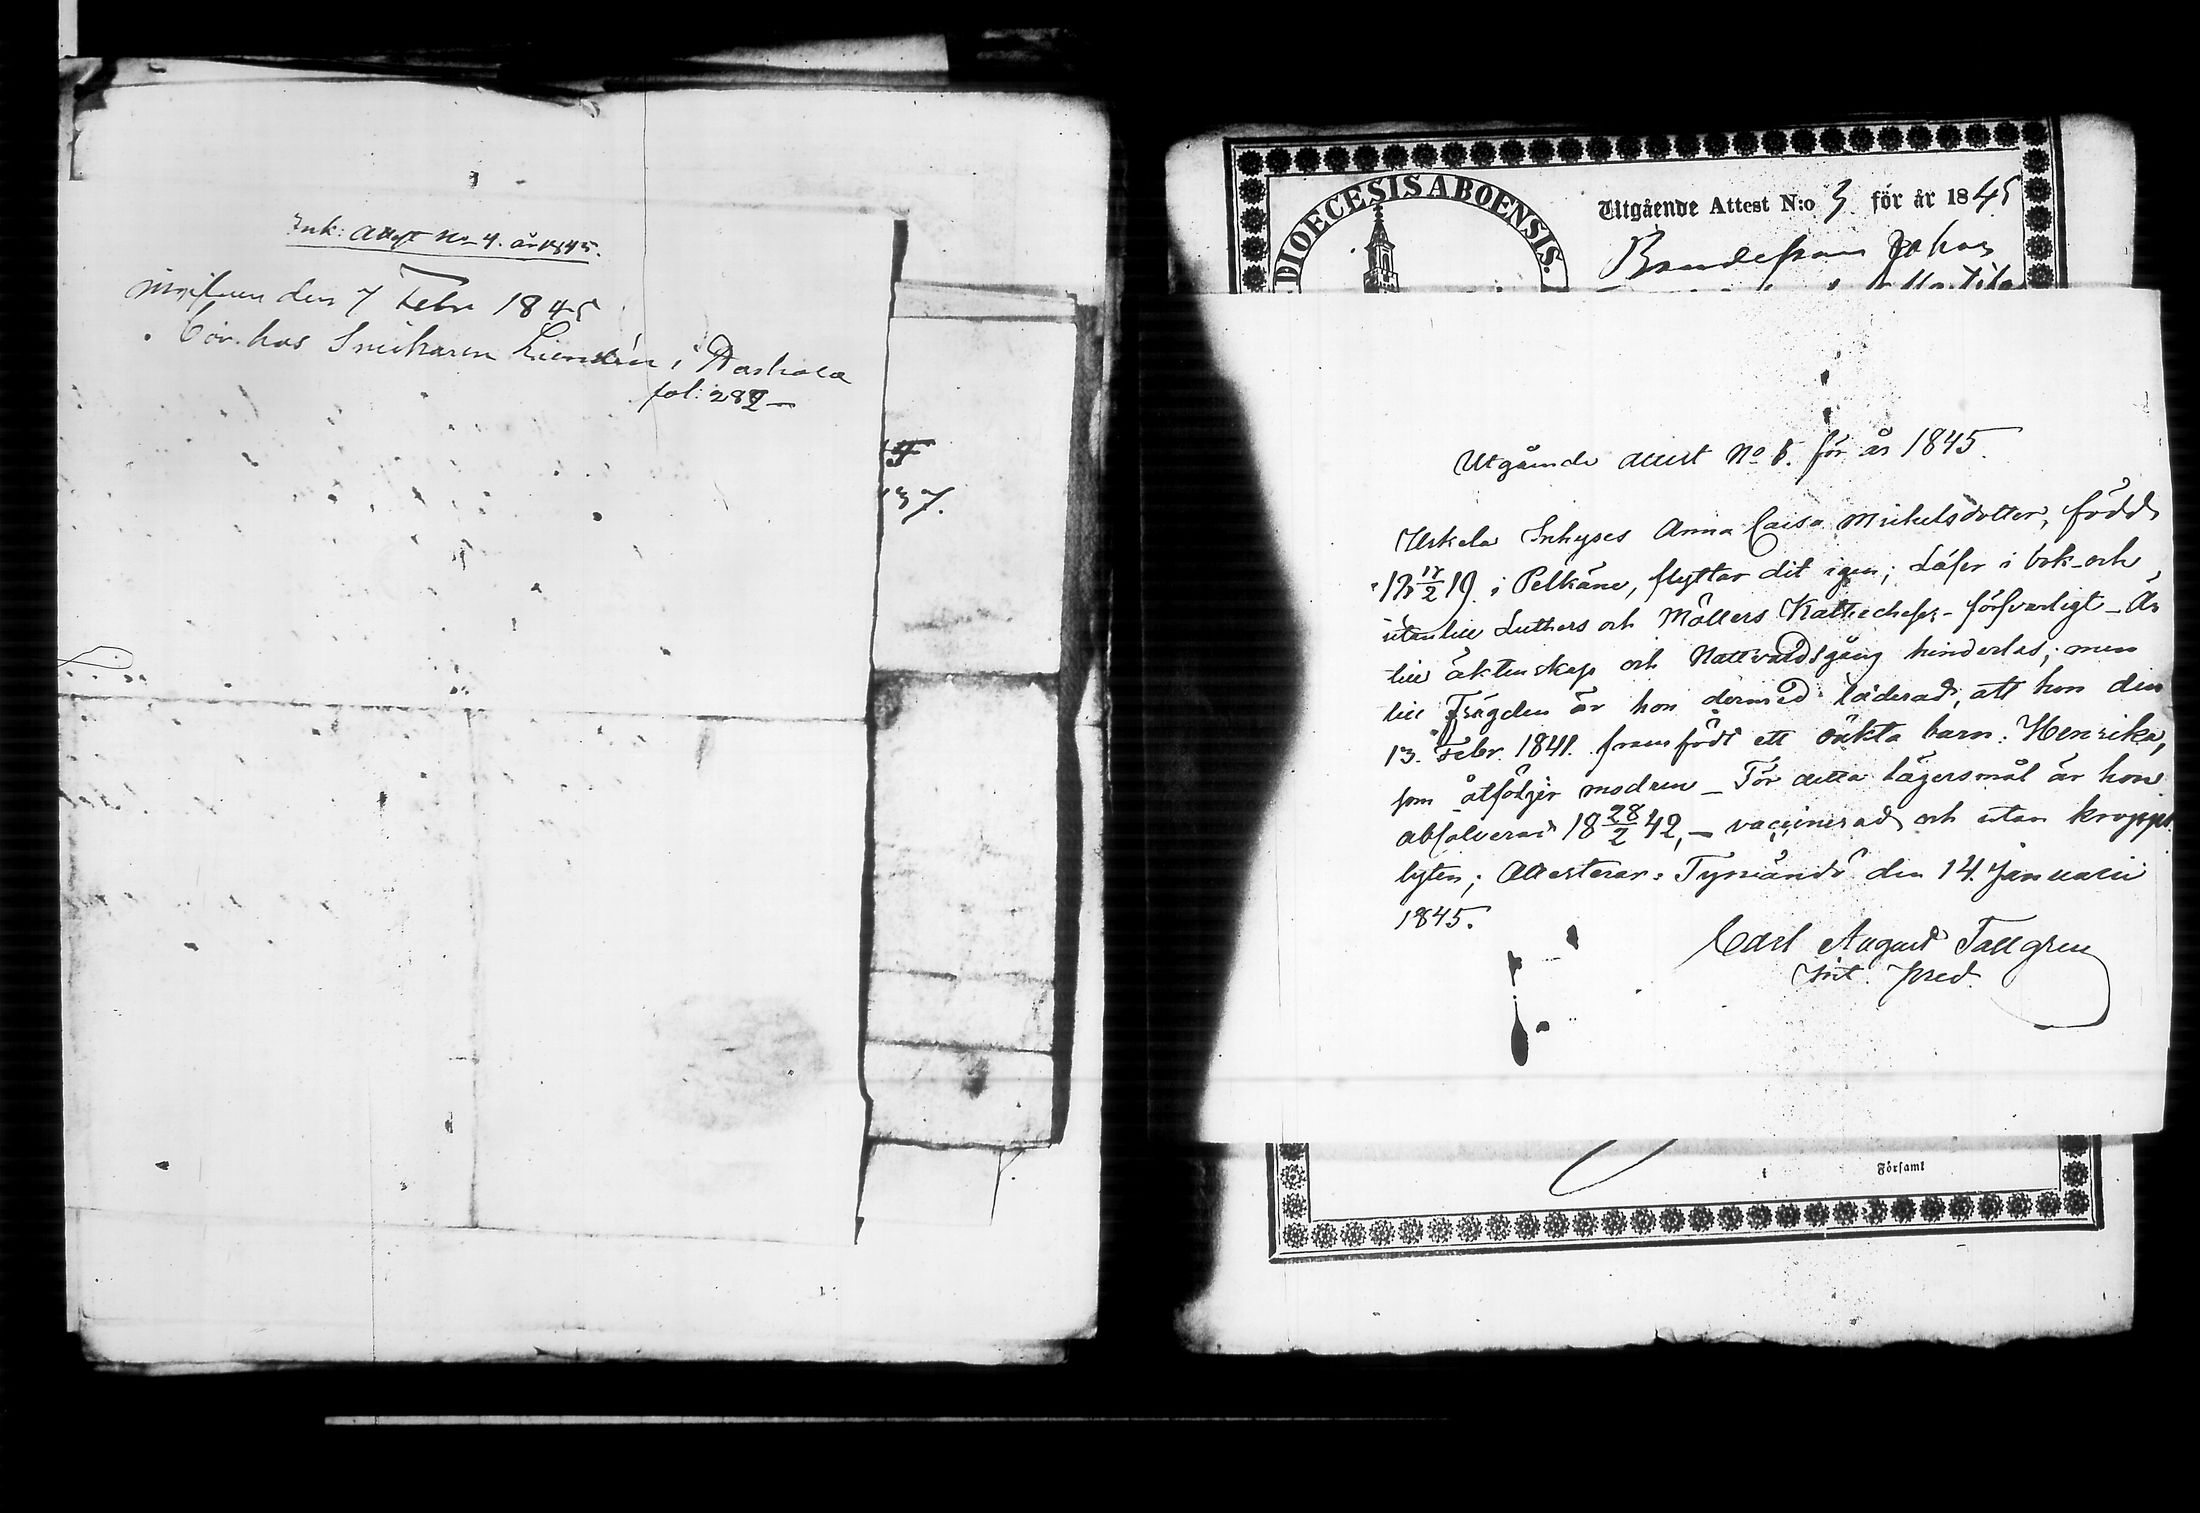 Ink: Attest No 4. år 1845.
den 7 Febr 1845
bor hos Snickaren Lindén i
fol: 282 —
37.
DIOECESIS ABOENSIS.
Utgående Attest N:o 3 för år 1845
Bondesonen Johan
Utgående attest No 8. för år 1845.
Uskela Inhyses Anna Caisa Mickelsdotter, född
18 17/2 19 i Pelkäne, flyttar dit igen; Läser i bok och
utantill Luthers och Möllers Katheches försvarligt – Är
till äktenskap och Nattvardsgång hinderlös; men
till frägden är hon dermed läderad, att hon den
13. Febr. 1841. framfödt ett oäkta barn: Henrika,
som åtföljer modren – För detta lägersmål är hon
absolverad 18 28/2 42, – vaccinerad och utan kropps
lyten; Attesterar: Tyrvändö den 14 Januarii
1845.
Carl August Tallgren
Vict. pred.
Församl